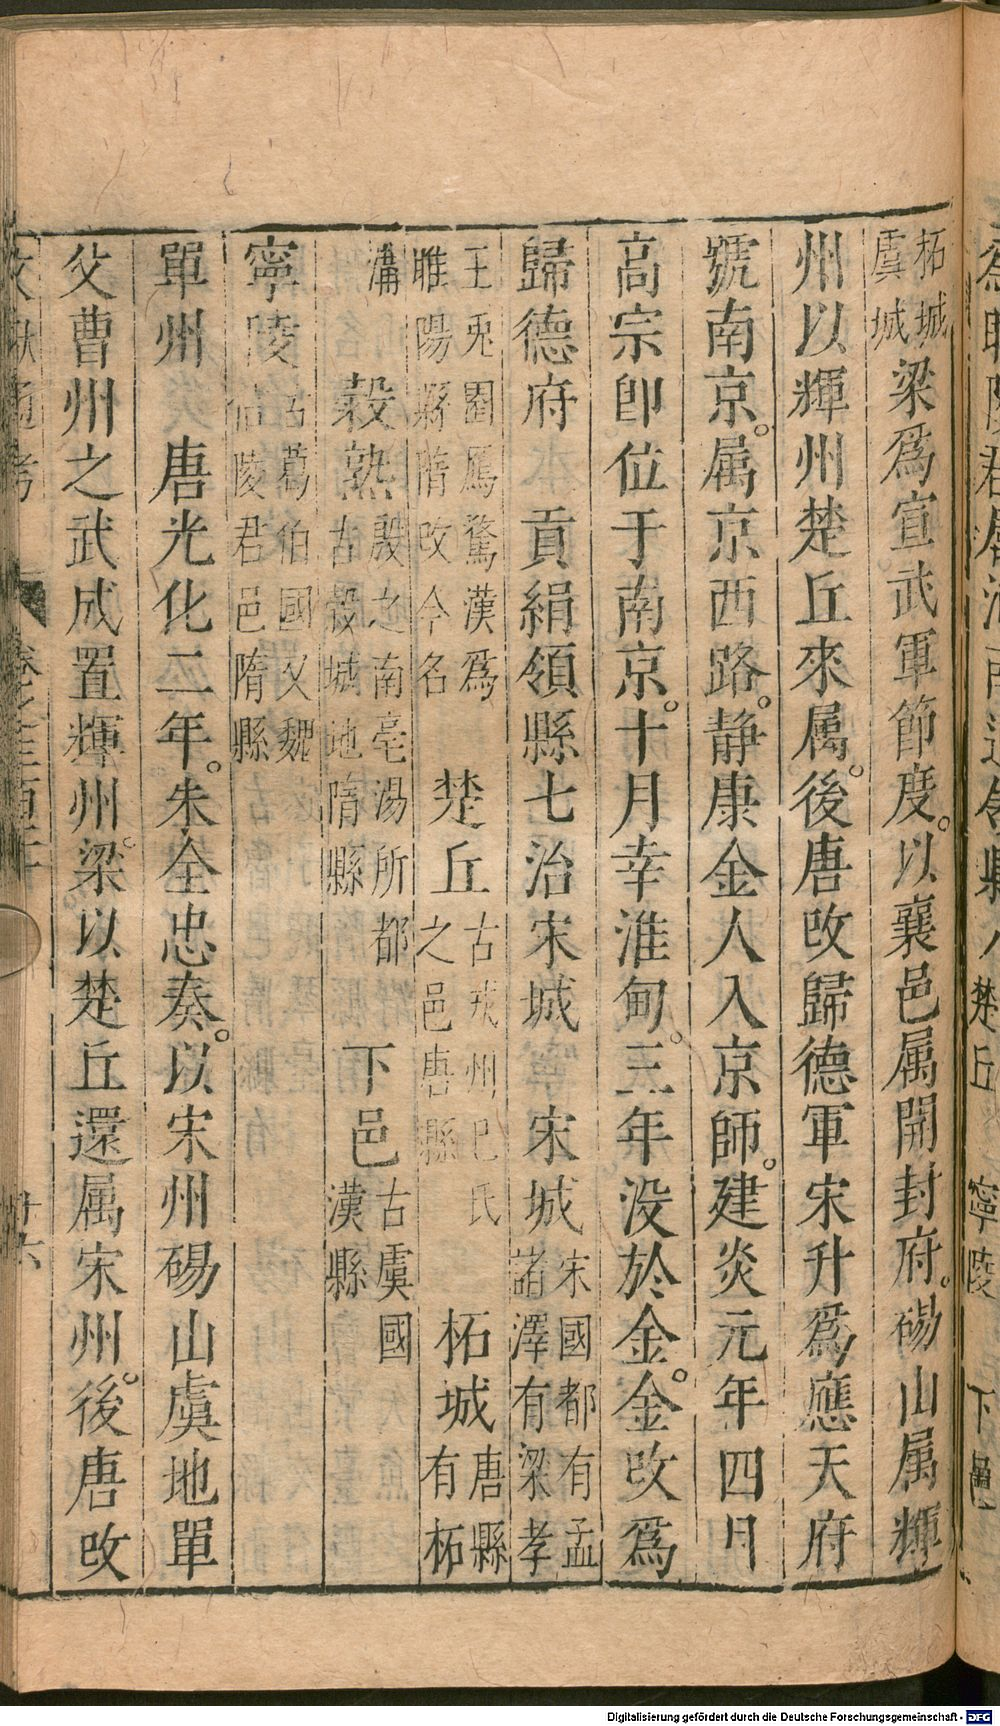 楚丘 寧陵 下邑
柘城
虞城
梁爲宣武軍節度。以襄邑属開封府。碭山属輝
州以輝州楚丘來属。後唐改歸德軍宋升爲應天府
號南京。属京西路。静康金人入京師。建炎元年四月
高宗卽位于南京。十月幸淮甸。三年没於金。金改爲
歸德府 貢絹領縣七治宋城 宋城 宋國都有孟諸澤有梁孝
王兎園鴈鶩漢爲睢陽縣隋改今名 楚丘 古戎州巳氏之邑唐縣 柘城 唐縣有柘
溝 榖熟 殷之南亳湯所都古榖城地隋縣 下邑 古虞國漢縣
寧陵 古葛伯國又魏信陵君邑隋縣
單州 唐光化二年。朱全忠奏。以宋州碭山虞地單
父曹州之武成置輝州。梁以楚丘還属宋州。後唐改
文獻通考
Digitalisierung gefördert durch die Deutsche Forschungsgemeinschaft - DFG